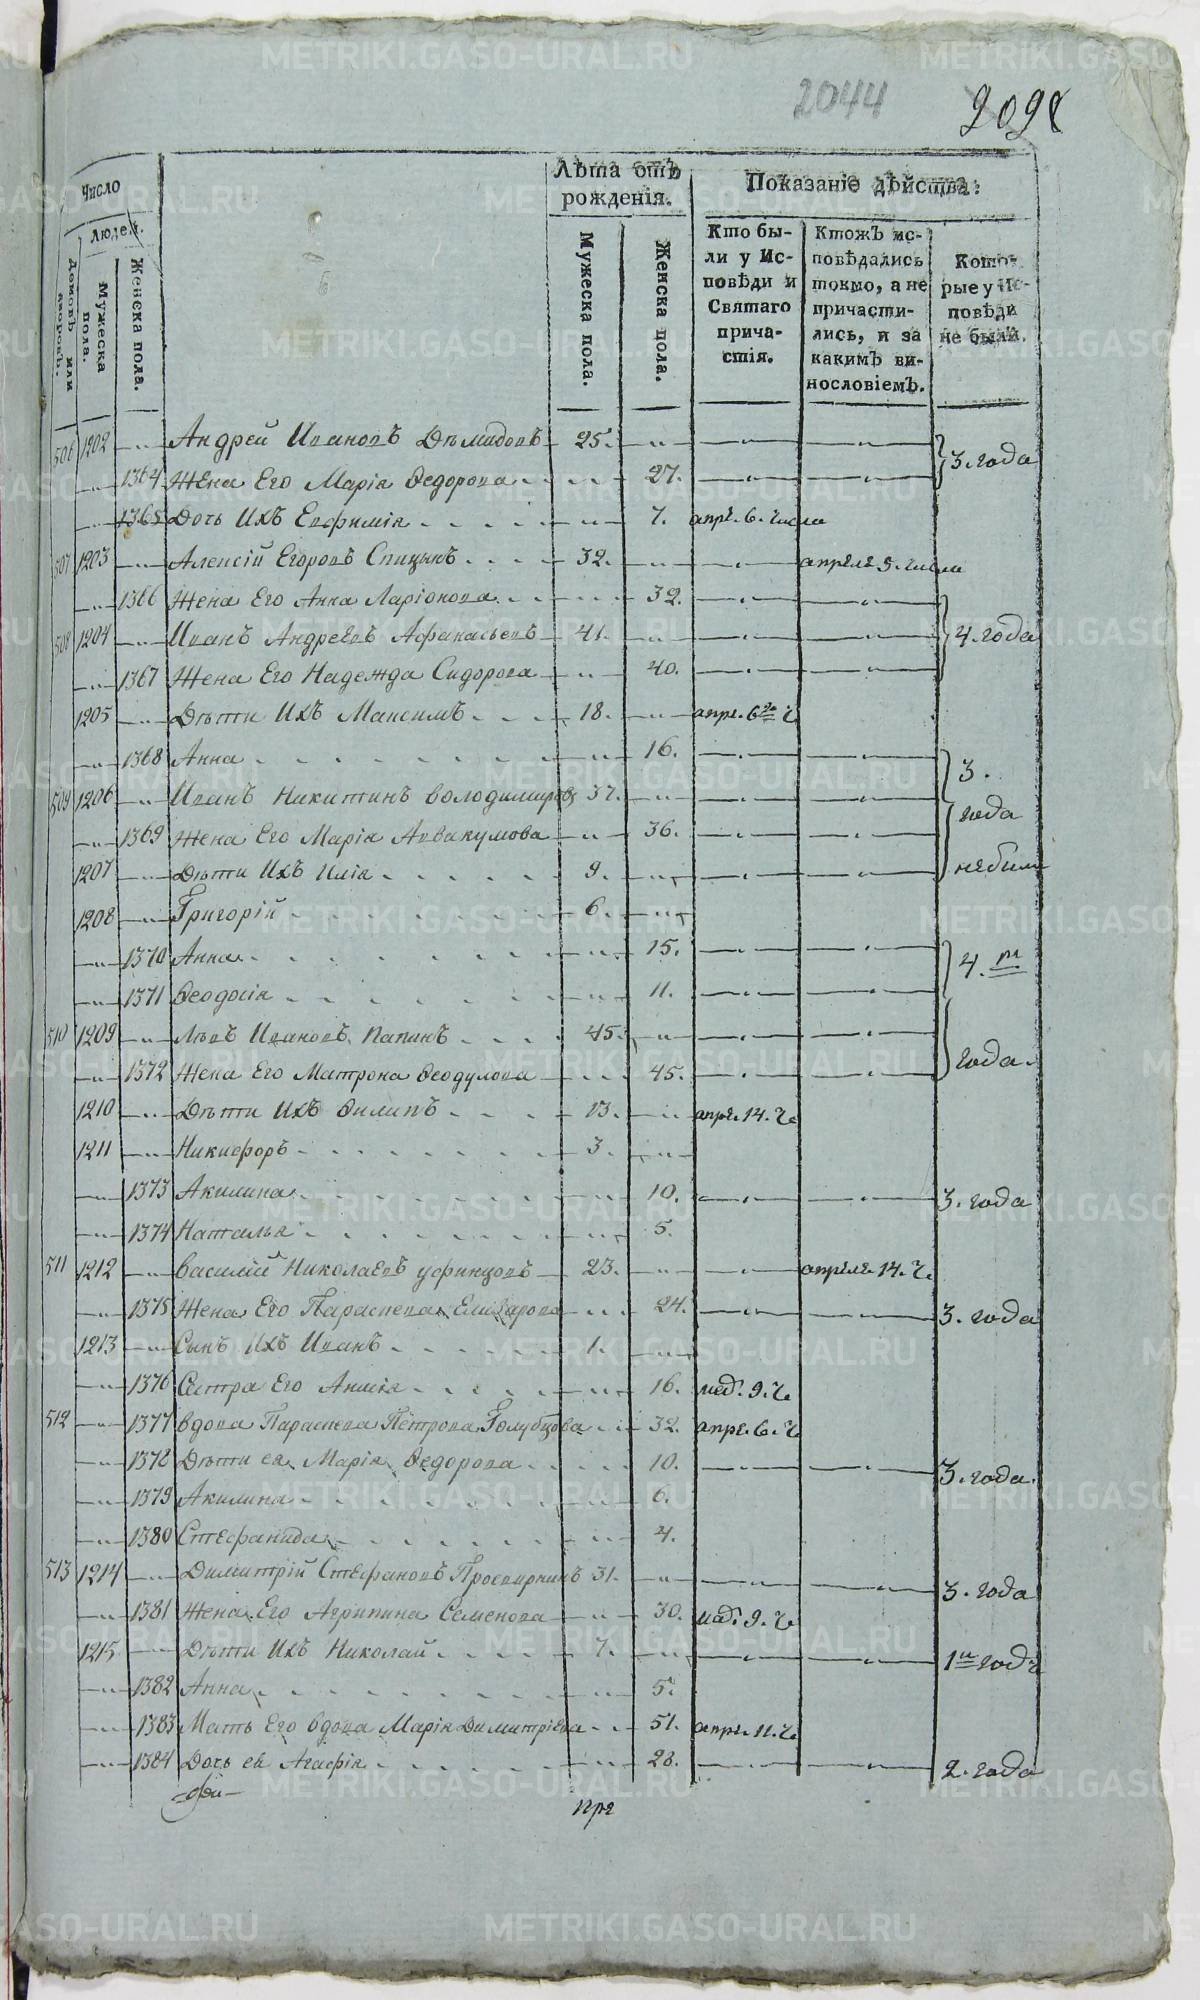 2044 2092
Число
людей.
Домовъ или дворовъ.
Мужеска пола.
Женска пола.
Лѣта отъ рожденія.
Мужеска пола.
Женска пола.
Показаніе дѣйства:
Кто были у Исповѣди и Святаго причастія.
Ктожъ исповѣдались токмо, а не причастились, и за какимъ винословіемъ.
Которые у Исповѣди не были.
506 1202 Андрей Ивановъ Дѣмидовъ 25. 3. года
1364 Жена Его Марія Ѳедорова 27.
1365 Дочь Ихъ Евфимія 7. апре. 6. числа
507 1203 Алексій Егоровъ Спицынъ 32. апреле 5. числа
1366 Жена Его Анна Ларіонова 32.
508 1204 Иванъ Андреевъ Афанасьевъ 41. 4. года
1367 Жена Его Надежда Сидорова 40.
1205 Дѣти Ихъ Максимъ 18. апре. 6го ч
1368 Анна 16. 3.
509 1206 Иванъ Никитинъ Володимировъ 37. года
1369 Жена Его Марія Аввакумова 36.
1207 Дѣти Ихъ Илія 9. небыли
1208 Григорій 6.
1370 Анна 15. 4. ре
1371 Ѳеодосія 11.
510 1209 Львъ Ивановъ Папинъ 45.
1372 Жена Его Матрона Ѳеодулова 45. года.
1210 Дѣти Ихъ Филипъ 13. апре. 14. ч.
1211 Никифоръ 3.
1373 Акилина 10. 3. года
1374 Наталья 5.
511 1212 Василій Николаевъ Уфинцовъ 23. апреле 14. ч.
1375 Жена Его Параскева Елизарова 24. 3. года
1213 Сынъ Ихъ Иванъ 1.
1376 Сестра Его Анисія 16. 9. ч.
512 1377 Вдова Параскева Петрова Голубцова 32. апре. 6. ч
1378 Дѣти ея Марія Ѳедорова 10. 3. года.
1379 Акилина 6.
1380 Стефанида 4.
513 1214 Димитрій Стефановъ Просвирнинъ 31. 3. года
1381 Жена Его Агрипина Семенова 30. 9. ч
1215 Дѣти Ихъ Николай 7. 1й годъ
1382 Анна 5.
1383 Мать Его вдова Марія Димитріева 51. апре. 11. ч.
1384 Дочь ея Агафія 28. 2. года